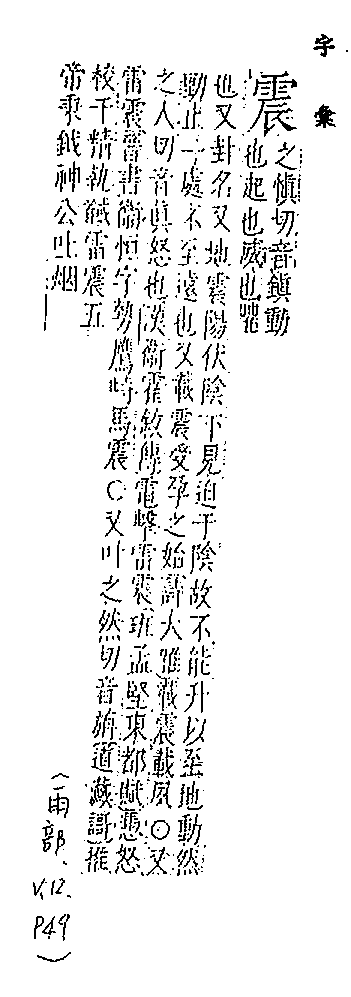 字彙
震
之慎切音鎮動
也起也威也
也又卦名又地震陽伏陰下見迫于陰故不能升以至地動然
動止一處不至遠也又載震受孕之始詩大雅載震載夙〇又
之人切音真怒也漢衛霍敘傳電擊雷震班孟堅東都賦憑怒
雷震晉書衛恒字勢鷹跱馬震〇又叶之然切音旃道藏謌推
校千精執鉞雷震五
帝秉鉞神公吐烟
(雨部、
V.12.
P49)